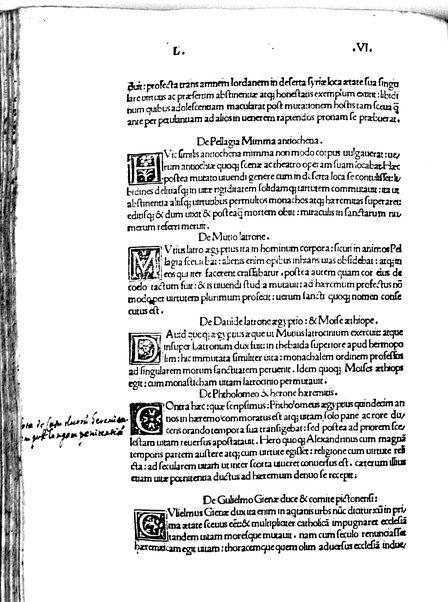 L. .VI.
duit: profecta trans amnem Iordanem in deserta syriæ loca ætate sua singu
lare uirtutis ac præsertim abstinentiæ atq; honestatis exemplum extitit: libidi
num quibus adolescentiam macularat post mutationem hostis tam sæua q̃
ante per petulantiam ad alios in uenerem rapiendos pronam se præbuerat.
De Pellagia Mimma antiochena.
HVic similis antiochena mimma non modo corpus uulgauerat: ue
rum antiochiæ quoq; scenæ ac theatro operam suam locabat. Hæc
postea mutato uiuendi genere cum in deserta loca se contulisset li
bidines delitiasq; in uitæ rigiditatem solidamq; uirtutem commutauit: ita ut
abstinentia aliisq; uirtutibus permultos monachos atq; hæremitas superaret:
editisq; & dum uixit & posteaq̃ mortem obiit: miraculis in sanctarum nu
merum referri meruit.
De Mutio latrone.
MVtius latro ægyptius ita in hominum corpora: sicuti in animos Pel
lagia sæuiebat: alienis enim opibus inhians uias obsidebat: atq; in
eos qui iter facerent crassabatur. postea autem quam cor eius de
coelo tactum fuit: & is uiuendi studia mutauit: ad hæremum profectus nõ
modo per uirtutem plurimum profecit: uerum sancti quoq; nomen conse
cutus est.
De Dauide latrone ægyptio: & Moise æthiope.
DAuid quoq; ægyptius æque ut Mutius latrocinium exercuit: atque
insuper latronum dux fuit: in thebaida superiore apud hermopo
lim: hic immutata similiter uita: monachalem ordinem professus
ad singularem morum sanctitatem peruenit. Idem quoq; Moises æthiops
egit: cum monasticham uitam latrocinio permutauit.
De Ptholomeo & herone hæremitis.
COntra hæc: quæ scripsimus: Ptholomeus ægyptius quindecim an
nos in hæremo commoratus est atq; uitam solo pane ac rore du
cens orando tempora sua transigebat: sed postea ad priorem sce
lestam uitam reuersus apostatauit. Hero quoq; Alexandrinus cum magnã
temporis partem austere atq; cum uirtute egisset: religione cum uirtute reli
cta: ad secularem uitam ut inter scorta uiueret conuersus est. cæterum illius
etiam uitæ pœnitentia ductus ad hæremum denuo se recepit:
De Gulielmo Gienæ duce & comite pictonensi:
GVlielmus Gienæ dux ita enim in aqtanis urbs nũc dicitur: cũ in pri
ma ætate sæuus eẽt: & multipliciter catholicã impugnaret ecclesiã
tandem uitam moresque mutauit. nam cum seculo renunciasset
hæremiticam egit uitam: thoracemque quem olim aduersus ecclesiã indue